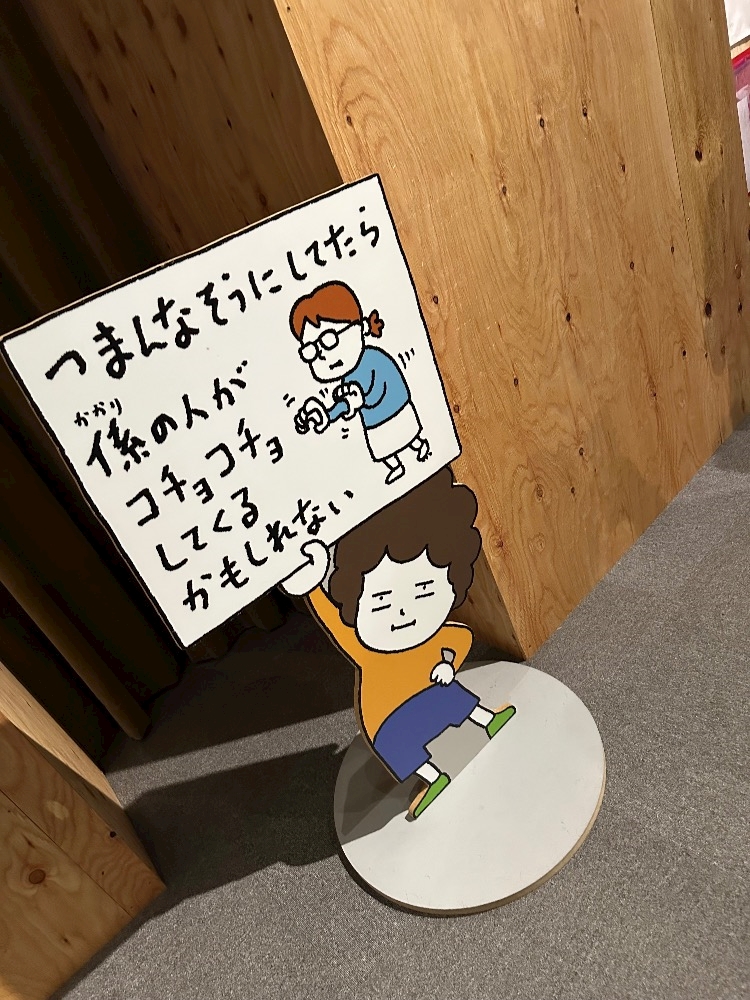 つまんなそうにしてたら
かかり
係の人が
コチョコチョ
してくる
かもしれない